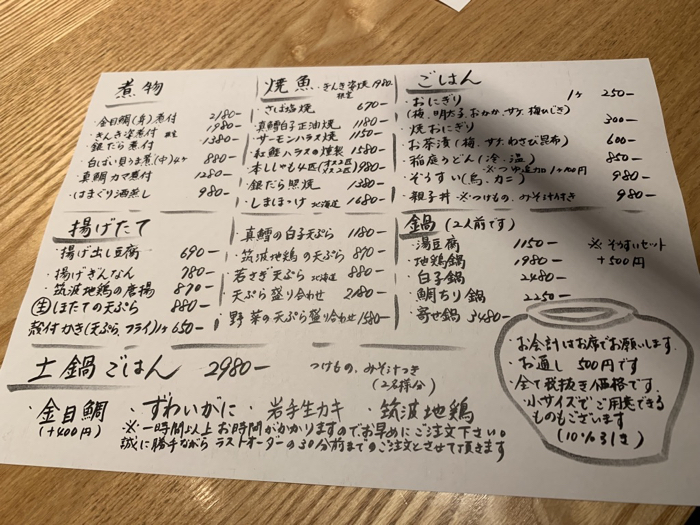 煮物
・金目鯛(身)煮付 2180-
・きんき姿煮付 限定 1980-
・銀だら煮付 1380-
・白ばい貝うま煮(中)4ヶ 880-
・真鯛カマ煮付 1280-
・はまぐり酒蒸し 980-
焼魚
・きんき姿焼 1980-
限定
・さば塩焼 670-
・真鱈白子正油焼 1180-
・サーモンハラス焼 1150-
・紅鮭ハラスの燻製 1580-
・本ししゃも4匹(オス2匹 メス2匹) 980-
・銀だら照焼 1380-
・しまほっけ 北海道 1680-
ごはん
・おにぎり 1ヶ 250-
(梅、明太子、おかか、サケ、梅ひじき)
・焼おにぎり 300-
・お茶漬(梅、サケ、わさび昆布) 600-
・稲庭うどん(冷、温) 850-
※つゆ追加 1ヶ100円
・ぞうすい(鳥、カニ) 980-
・親子丼 ※つけもの、みそ汁付き 980-
揚げたて
・揚げ出し豆腐 690-
・揚げぎんなん 780-
・筑波地鶏の唐揚 870-
生 ほたての天ぷら 880-
殻付かき(天ぷら、フライ)1ヶ 650-
・真鱈の白子天ぷら 1180-
・筑波地鶏の天ぷら 870-
・若さぎ天ぷら 北海道 880-
・天ぷら盛り合わせ 2180-
・野菜の天ぷら盛り合わせ 1580-
鍋 (2人前です)
・湯豆腐 1150-
・地鶏鍋 1980-
・白子鍋 2480-
・鯛ちり鍋 2250-
・寄せ鍋 3480-
※ぞうすいセット
+500円
土鍋ごはん 2980-
つけもの、みそ汁つき
(2名様分)
・金目鯛 ・ずわいがに ・岩手生カキ ・筑波地鶏
(+400円)
※一時間以上お時間がかかりますのでお早めにご注文下さい。
誠に勝手ながらラストオーダーの30分前までのご注文とさせて頂きます
・お会計はお席でお願いします。
・お通し 500円です
・全て税抜き価格です。
・小サイズでご用意できる
ものもございます
(10%引き)